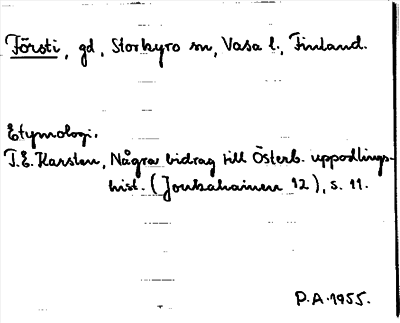 Försti, gd, Storkyro sn, Vasa l., Finland.
Etymologi.
T.E. Karsten, Några bidrag till Österb. uppodlings-
hist. (Joukahainen 12), s. 11.
P.A. 1955.